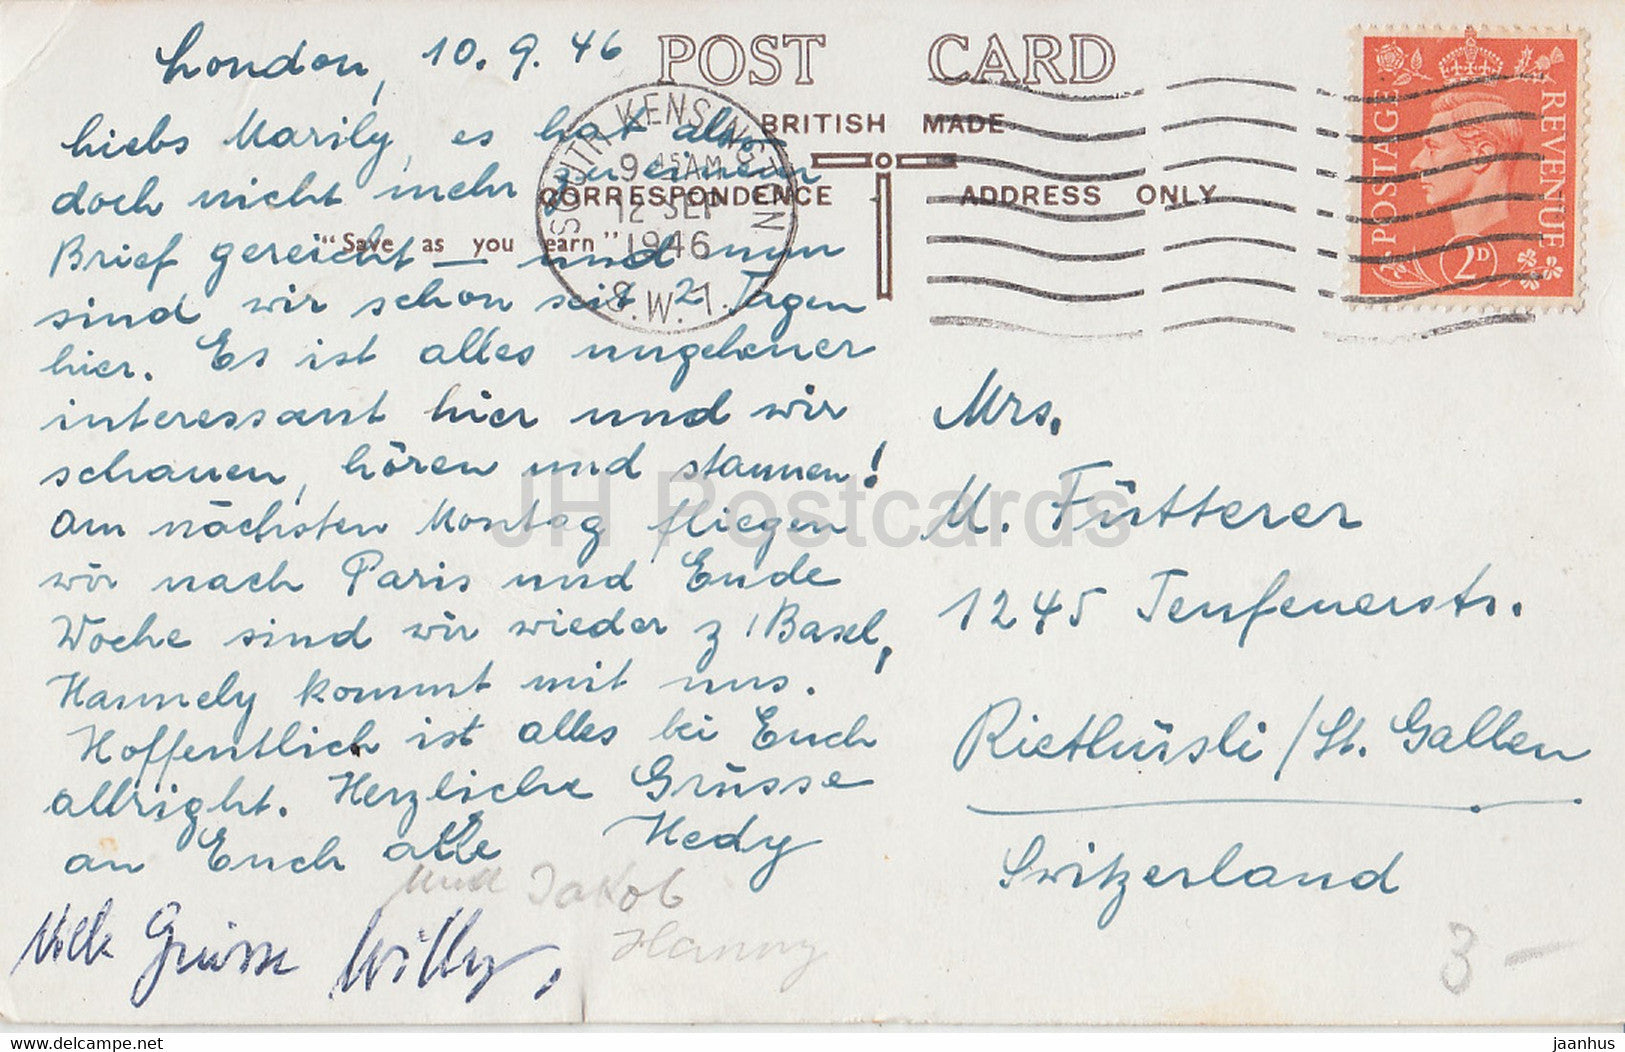 London, 10. 9. 46
liebs Marily, es hat also
doch nicht mehr zu einem
Brief gereicht — und nun
sind wir schon seit 2 Tagen
hier. Es ist alles ungeheuer
interessant hier und wir
schauen, hören und staunen!
Am nächsten Montag fliegen
wir nach Paris und Ende
Woche sind wir wieder z' Basel,
Hannely kommt mit uns.
Hoffentlich ist alles bei Euch
allright. Herzliche Grüsse
an Euch alle Hedy
Jakob
Hanny
Viele Grüsse Willy.
POST CARD
BRITISH MADE
CORRESPONDENCE ADDRESS ONLY
"Save as you earn"
SOUTH KENSINGTON
9 45AM
12 SEP
1946
S.W.1.
POSTAGE REVENUE
2D
Mrs.
M. Fütterer
1245 Teufenerstr.
Riethüsli / St. Gallen
Switzerland
3 –
JH Postcards
www.delcampe.net
jaanhus